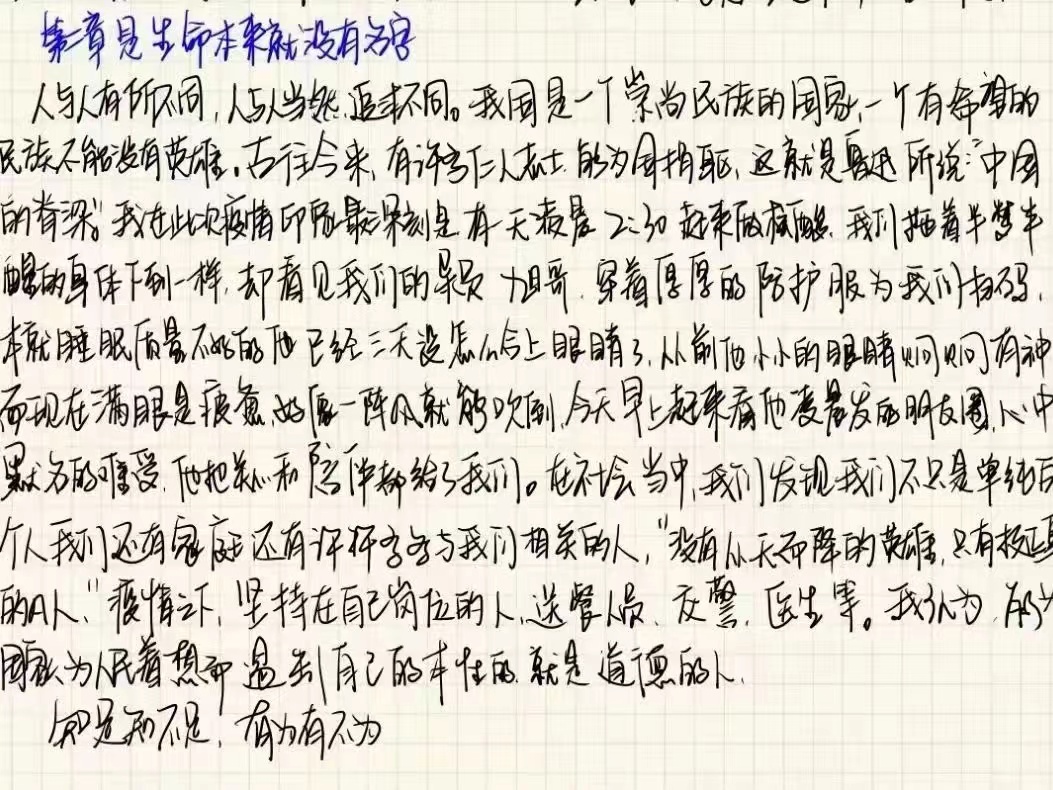 第二章是生命本来就没有名字
人与人有所不同,人与人当然追求不同。我国是一个崇尚民族的国家,一个有希望的
民族不能没有英雄。古往今来,有许多仁人志士能为国捐躯,这就是鲁迅所说:"中国
的脊梁"。我在此次疫情印象最深刻是有一天凌晨2:30起来做核酸,我们拖着半梦半
醒的身体下到一样,却看见我们的导员旭哥,穿着厚厚的防护服为我们扫码,
本就睡眠质量不好的他已经三天没怎么合上眼睛了,从前他小小的眼睛炯炯有神
而现在满眼是疲惫,好像一阵风就能吹倒,今天早上起来看他凌晨发的朋友圈,心中
默名的难受,他把关心和陪伴都给了我们。在社会当中,我们发现我们不只是单纯
个人我们还有家庭还有许许多多与我们相关的人,"没有从天而降的英雄,只有挺
的凡人,"疫情之下,坚持在自己岗位的人,送餐人员,交警,医生等。我认为,
国家为人民着想而温到自己的本性的,就是道德的人.
知足知不足,有为有不为